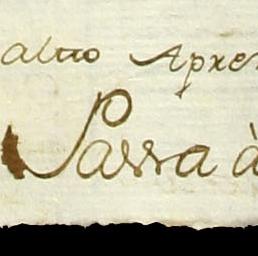 altro Apre
Passa à